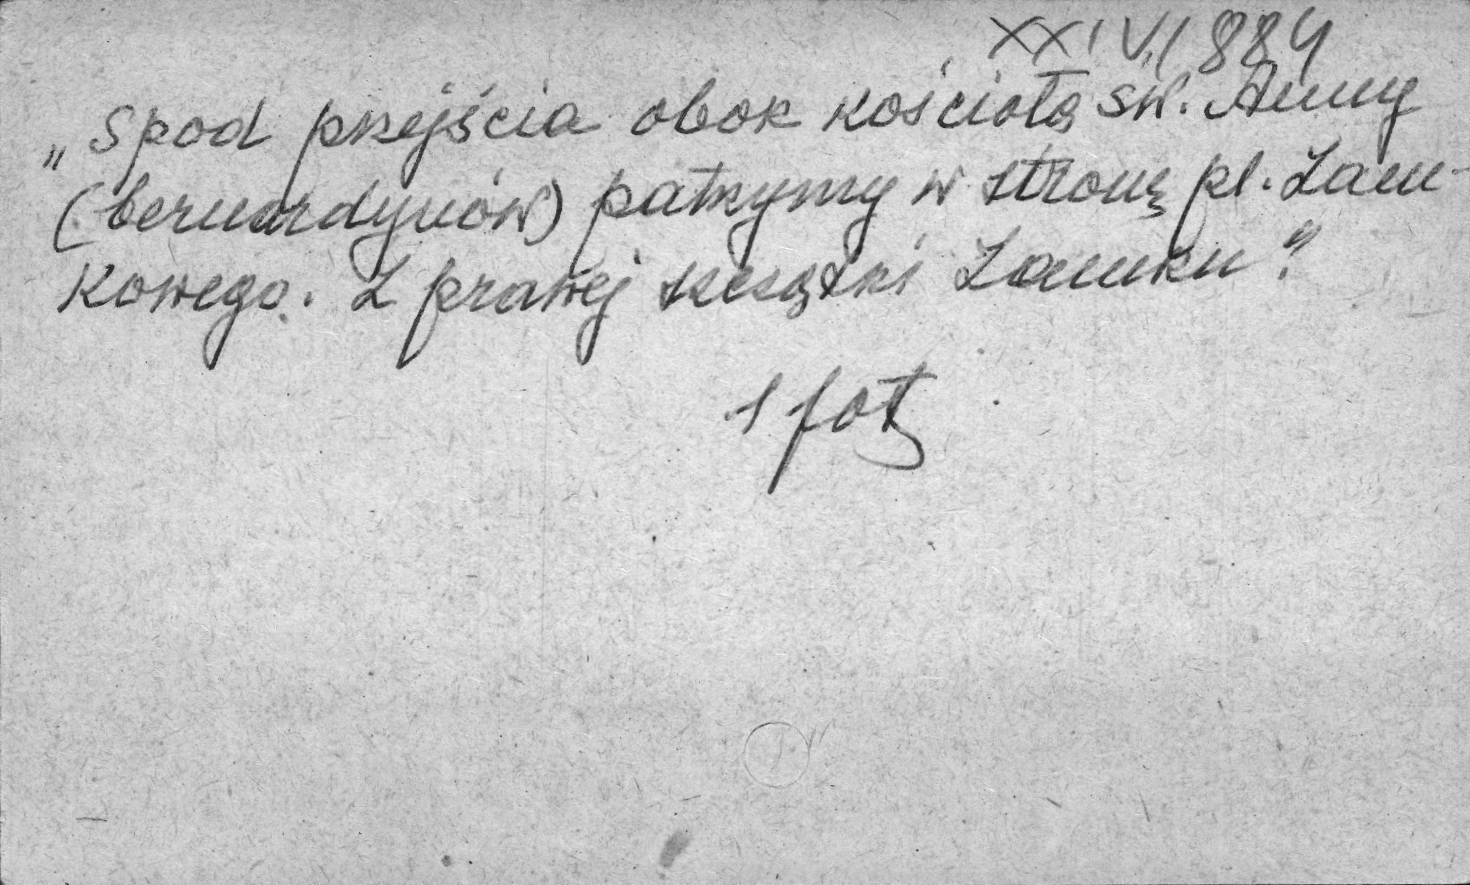 XXIV/884
„Spod przejścia obok kościoła św. Anny
(bernardynów) patrzymy w stronę pl. Zam-
kowego. Z prawej szczątki Zamku".
1 fot